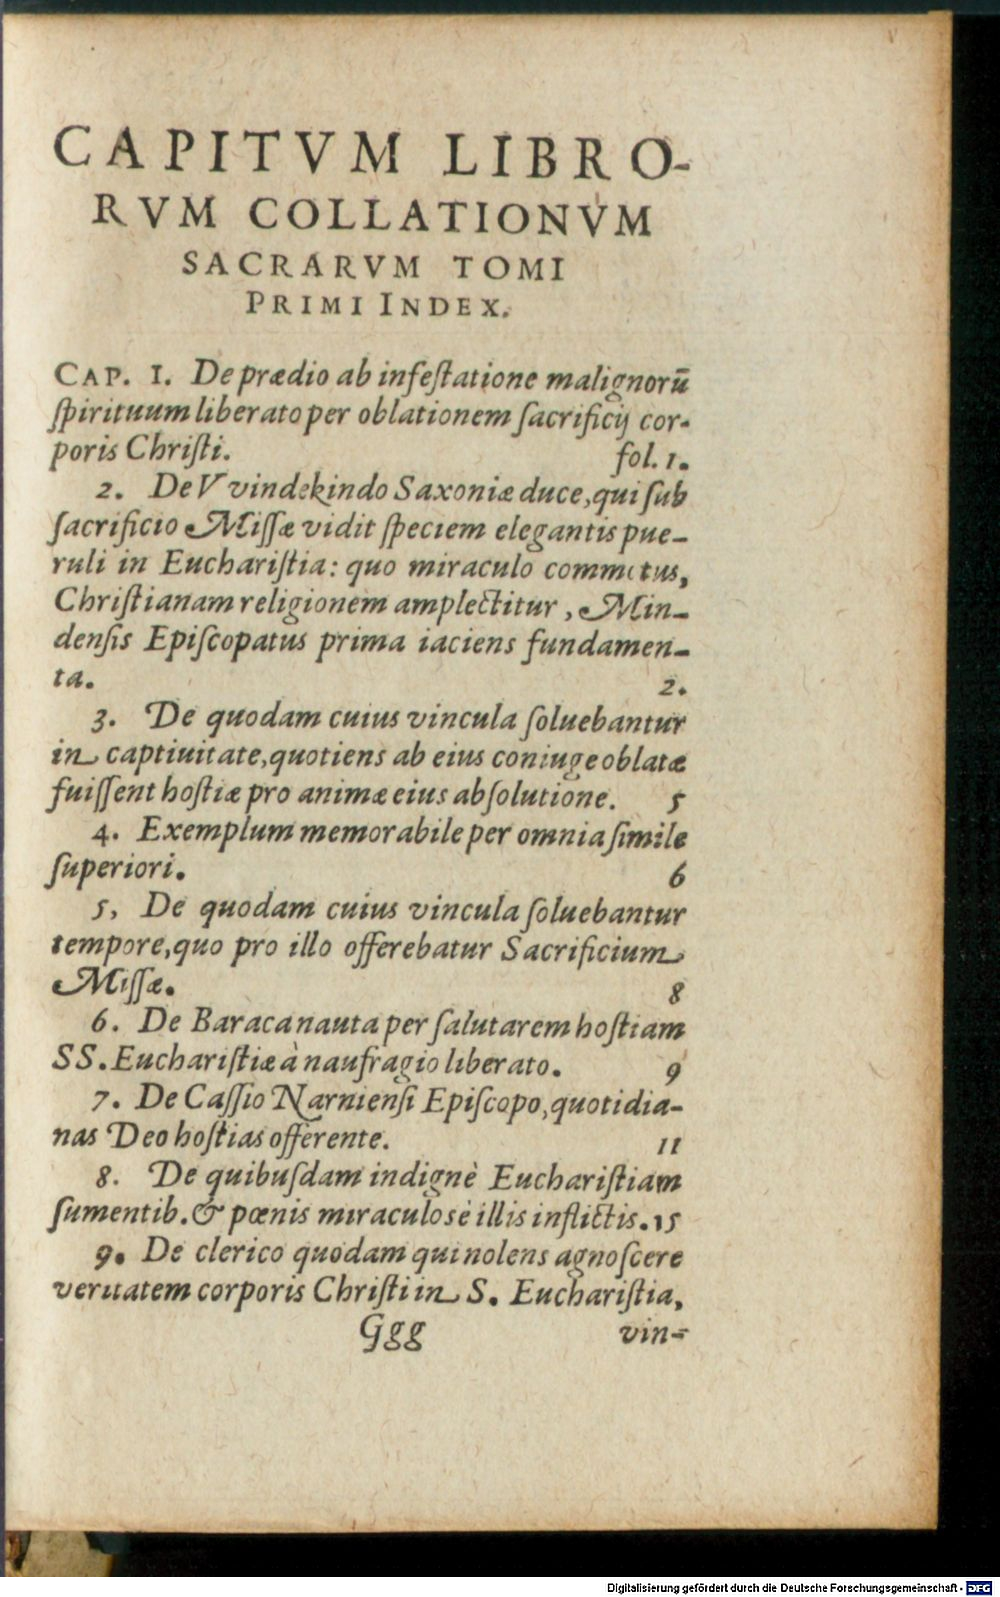 CAPITVM LIBRO-
RVM COLLATIONVM
SACRARVM TOMI
PRIMI INDEX.
CAP. I. De prædio ab infeſtatione malignorū
ſpirituum liberato per oblationem ſacrificij cor-
poris Chriſti. fol. 1.
2. De VVindekindo Saxoniæ duce, qui ſub
ſacrificio Miſſæ vidit ſpeciem elegantis pue-
ruli in Euchariſtia: quo miraculo commotus,
Chriſtianam religionem amplectitur, Min-
denſis Epiſcopatus prima iaciens fundamen-
ta. 2.
3. De quodam cuius vincula ſoluebantur
in captiuitate, quotiens ab eius coniuge oblatæ
fuiſſent hoſtiæ pro animæ eius abſolutione. 5
4. Exemplum memorabile per omnia ſimile
ſuperiori. 6
5, De quodam cuius vincula ſoluebantur
tempore, quo pro illo offerebatur Sacrificium
Miſſæ. 8
6. De Baraca nauta per ſalutarem hoſtiam
SS. Euchariſtiæ à naufragio liberato. 9
7. De Caſſio Narnienſi Epiſcopo, quotidia-
nas Deo hoſtias offerente. 11
8. De quibuſdam indignè Euchariſtiam
ſumentib. & pœnis miraculosè illis inflictis. 15
9. De clerico quodam qui nolens agnoſcere
veritatem corporis Chriſti in S. Euchariſtia,
Ggg vin-
Digitalisierung gefördert durch die Deutsche Forschungsgemeinschaft - DFG